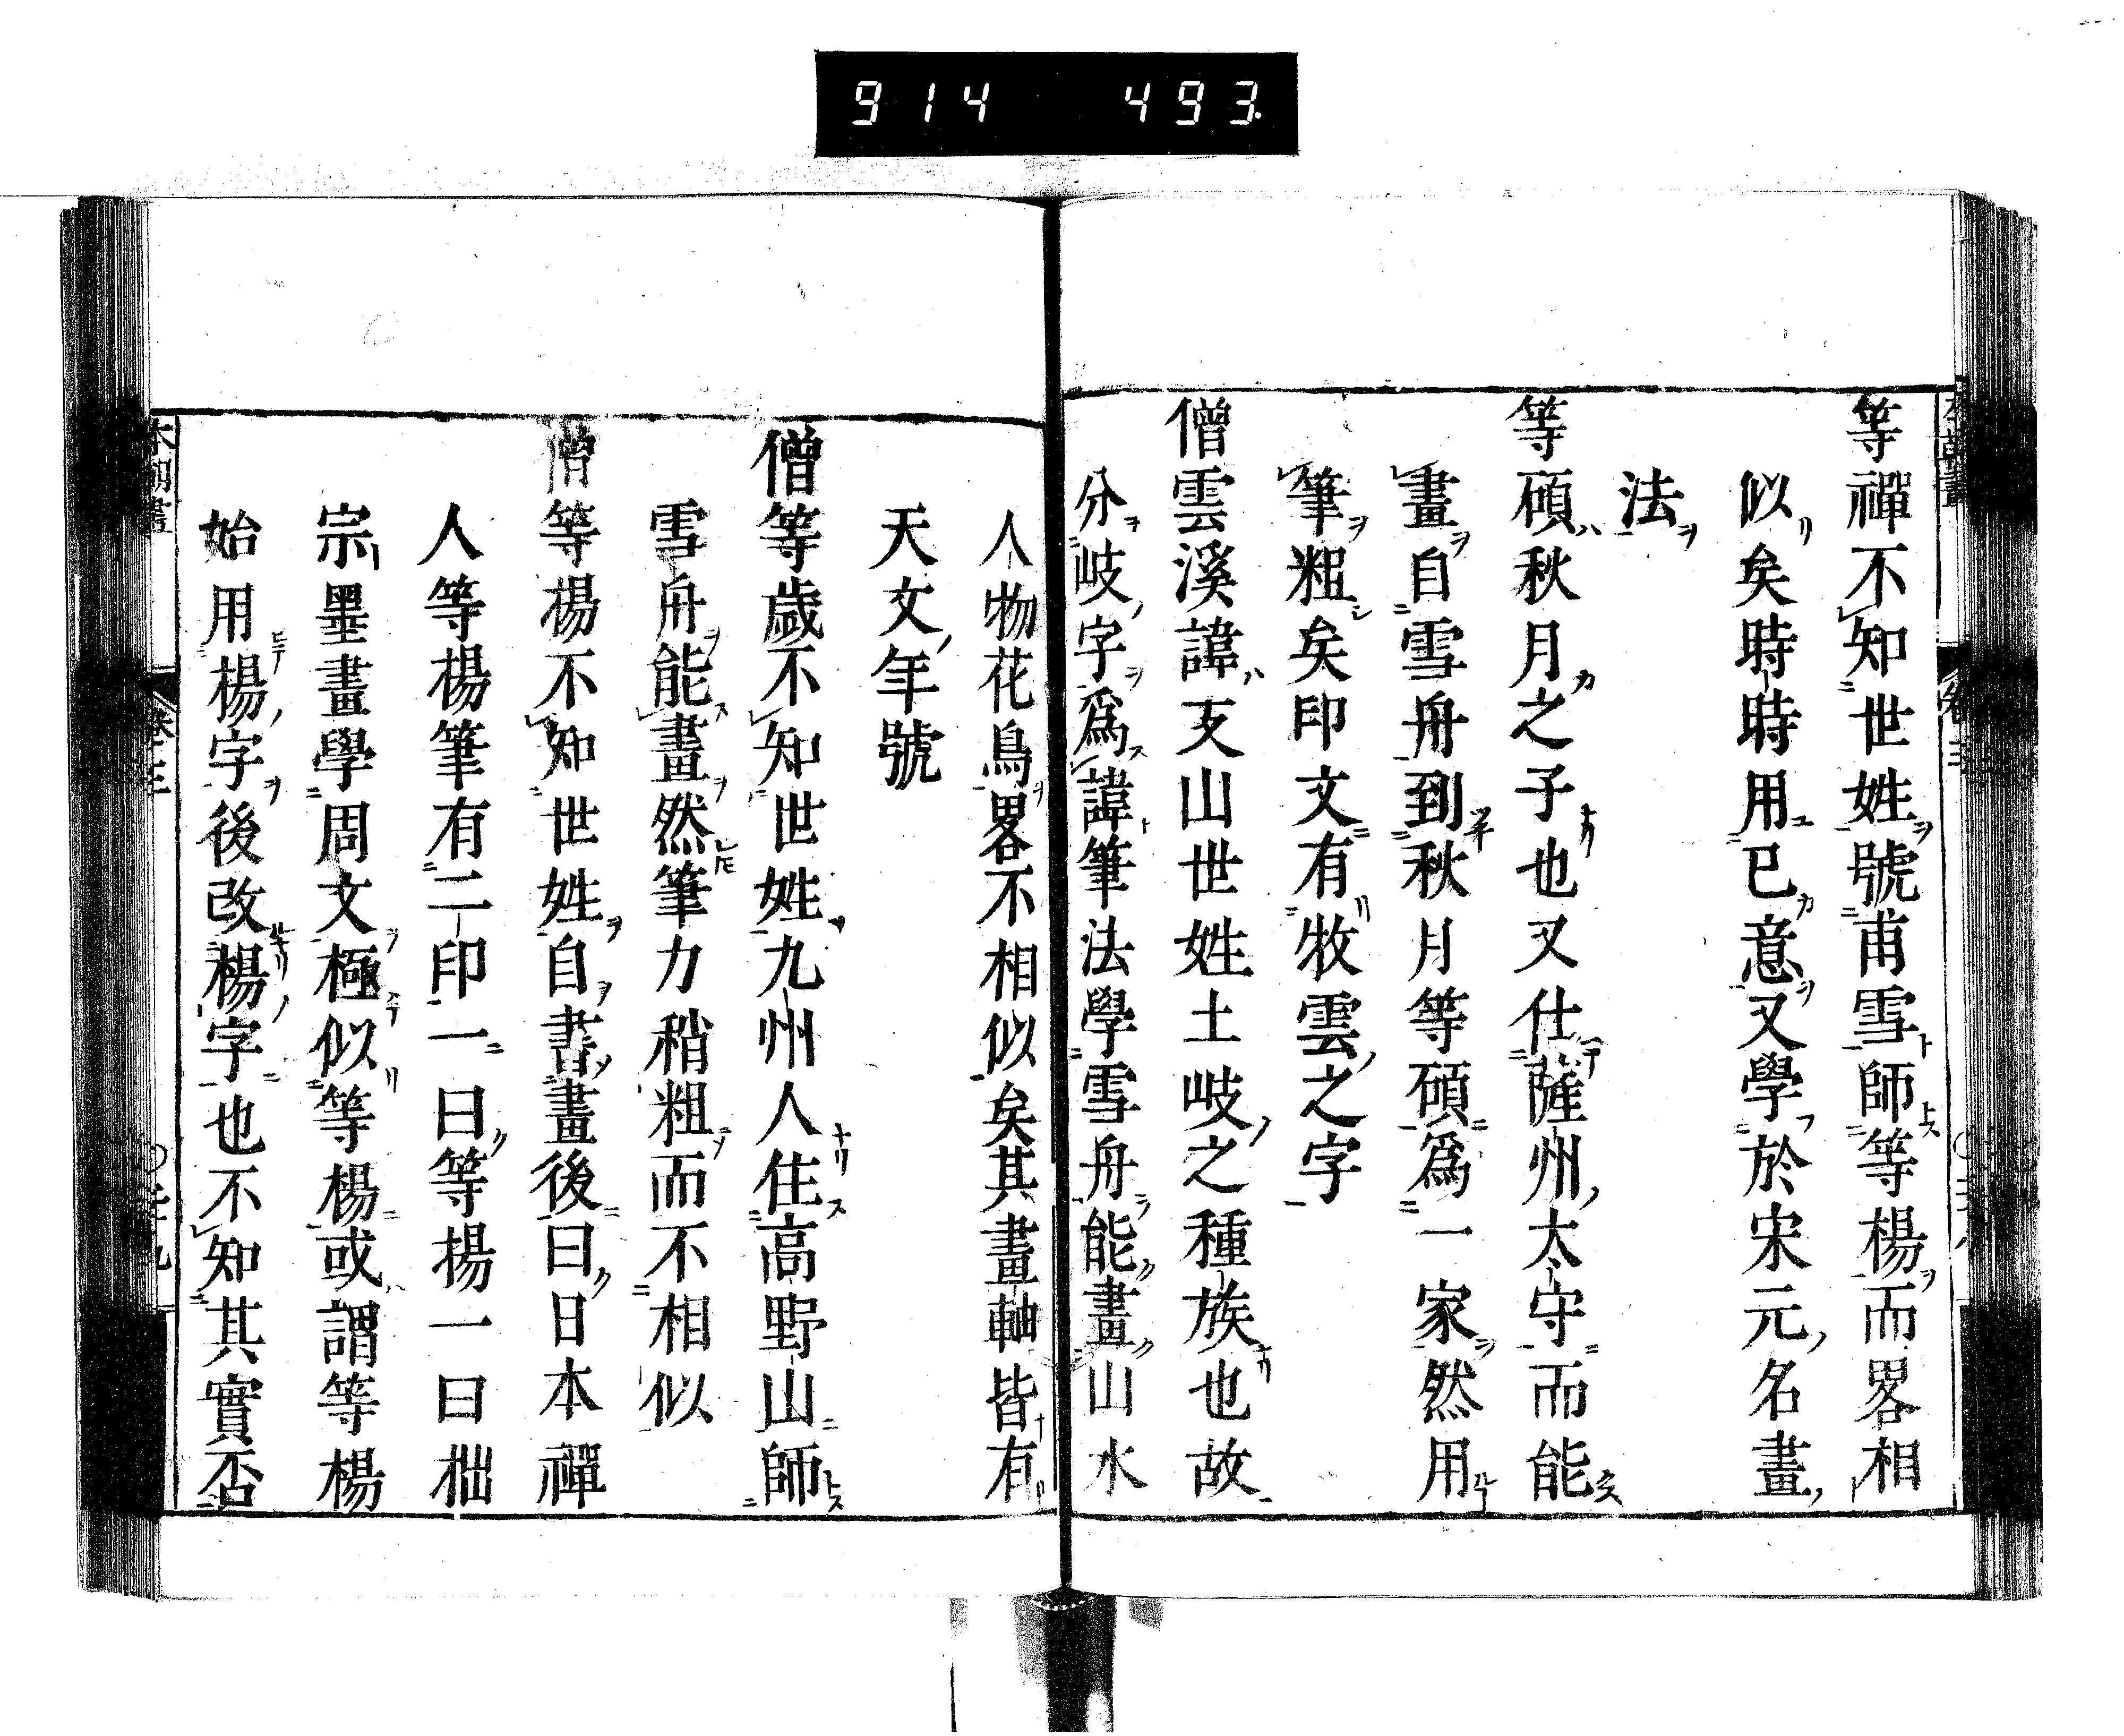 914 493
等禪不知世姓號甫雪師等楊而畧相
似矣時時用已意又學於宋元名畫
法
等碩秋月之子也又仕薩州太守而能
畫自雪舟到秋月等碩爲一家然用
筆粗矣印文有牧雲之字
僧雲溪諱支山世姓土岐之種族也故
分岐字爲諱筆法學雪舟能畫山水
人物花鳥畧不相似矣其畫軸皆有
天文年號
僧等歳不知世姓九州人住高野山師
雪舟能畫然筆力稍粗而不相似
僧等楊不知世姓自書畫後曰日本禪
人等楊筆有二印一曰等揚一曰拙
宗墨畫學周文極似等楊或謂等楊
始用楊字後改楊字也不知其實否
本朝畫 卷三